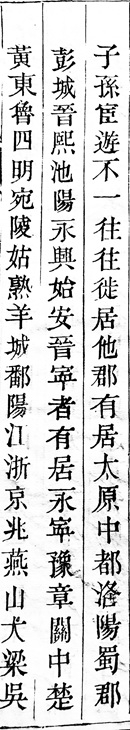 子孫宦遊不一往往徙居他郡有居太原中都洛陽蜀郡
彭城晉熙池陽永興始安晉寧者有居永寧豫章關中楚
黃東魯四明宛陵姑熟羊城鄱陽江浙京兆燕山大梁吳